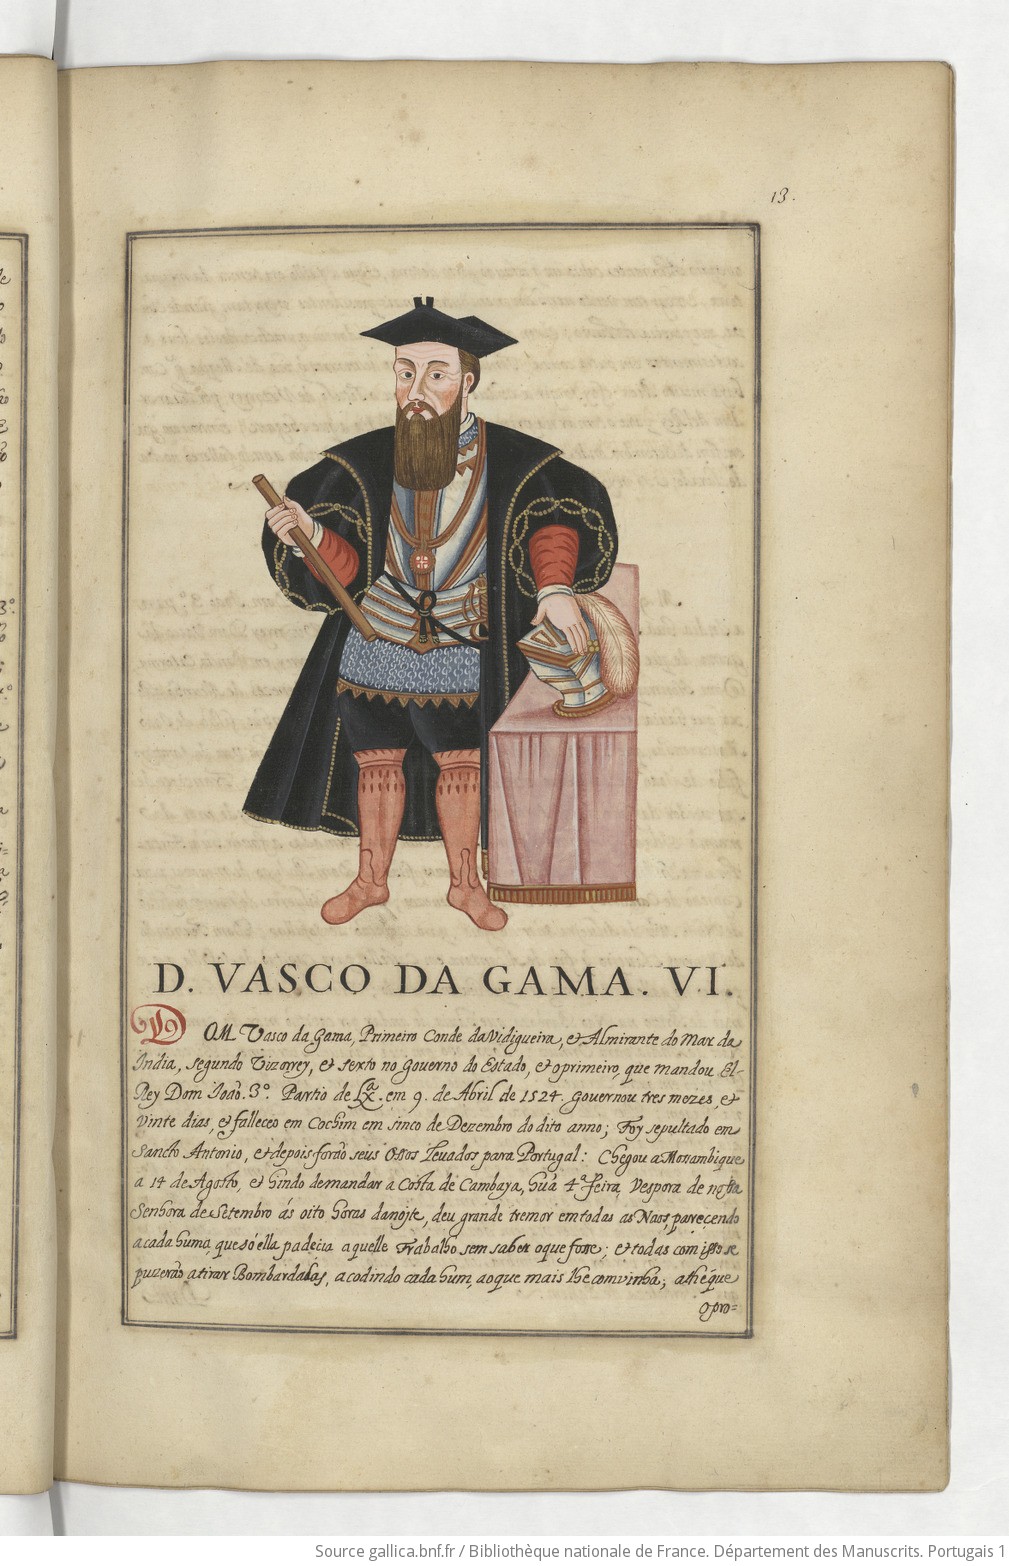 13.
D. VASCO DA GAMA. VI.
DOM Vasco da Gama, Primeiro Conde da Vidigueira, et Almirante do Mar da
India, segundo Vizorrey, et sexto no governo do Estado, et o primeiro, que mandou El-
Rey Dom Joaõ. 3º. Partio de Lxª. em 9. de Abril de 1524. governou tres mezes, et
vinte dias, et falleceo em Cochim em sinco de Dezembro do dito anno; Foy sepultado em
Sancto Antonio, et depois foraõ seus Ossos Levados para Portugal: Chegou a Mozambique
a 14 de Agosto, et hindo demandar a Costa de Cambaya, huã 4ª feira, Vespora de nossa
Senhora de Setembro ás oito horas da nojte, deu grande tremor em todas as Naos, parecendo
a cada huma, que só ella padecia aquelle Trabalho sem saber o que fosse; et todas com isso se
puzeraõ a tirar Bombardadas, acodindo cada hum, ao que mais lhe comvinha; athéque
o pro=
Source gallica.bnf.fr / Bibliothèque nationale de France. Département des Manuscrits. Portugais 1